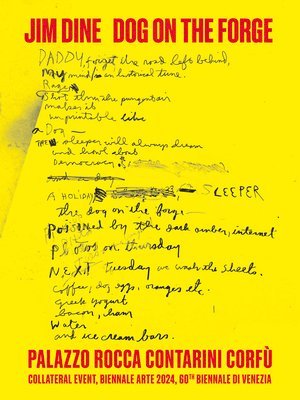 JIM DINE DOG ON THE FORGE
DADDY, forget the road left behind,
My mind is an historical tune.
Rage
Shot thru the pungent air
makes it
unprintable like
a Dog —
THE sleeper will always dream
and howl about
Democracy
and dog
A HOLIDAY SLEEPER
the dog on the forge
POISONED by the dark amber, internet
Plows on thursday
NEXT Tuesday we wash the sheets.
coffee, dog eggs, oranges etc.
greek yogurt
bacon, ham
Water
and ice cream bars.
PALAZZO ROCCA CONTARINI CORFÙ
COLLATERAL EVENT, BIENNALE ARTE 2024, 60TH BIENNALE DI VENEZIA